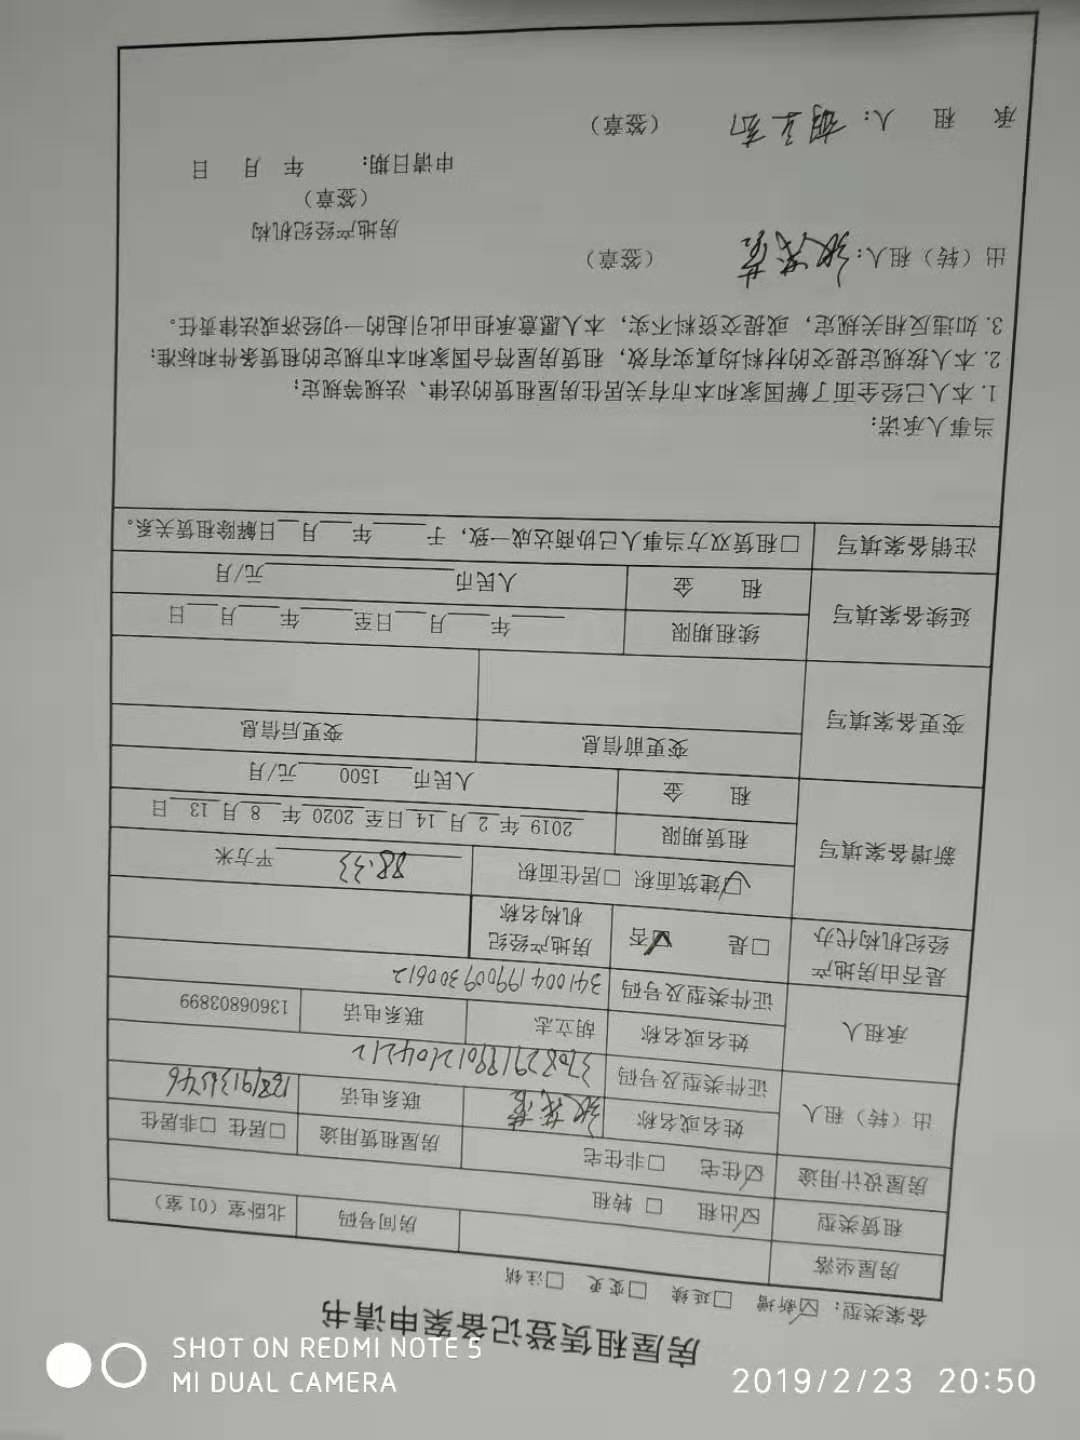 房屋租赁登记备案申请书
备案类型：☑新增 □延续 □变更 □注销
房屋坐落 房间号码 北卧室（01室）
租赁类型 ☑出租 □ 转租
房屋设计用途 ☑住宅 □非住宅 房屋租赁用途 □居住 □非居住
出（转）租人 姓名或名称 联系电话
证件类型及号码
承租人 姓名或名称 胡立志 联系电话 13606803899
证件类型及号码 341004199009300612
是否由房地产经纪机构代办 □是 ☑否 房地产经纪机构名称
新增备案填写 ☑建筑面积 □居住面积 88.33 平方米
租赁期限 2019 年 2 月 14 日至 2020 年 8 月 13 日
租 金 人民币 1500 元/月
变更备案填写 变更前信息 变更后信息
延续备案填写 续租期限 年 月 日至 年 月 日
租 金 人民币 元/月
注销备案填写 □租赁双方当事人已协商达成一致，于 年 月 日解除租赁关系。
当事人承诺：
1. 本人已经全面了解国家和本市有关居住房屋租赁的法律、法规等规定；
2. 本人按规定提交的材料均真实有效，租赁房屋符合国家和本市规定的租赁条件和标准；
3. 如违反相关规定，或提交资料不实，本人愿意承担由此引起的一切经济或法律责任。
出（转）租人： （签章）
房地产经纪机构
（签章）
申请日期： 年 月 日
承 租 人： 胡立志 （签章）
SHOT ON REDMI NOTE 5
MI DUAL CAMERA
2019/2/23 20:50